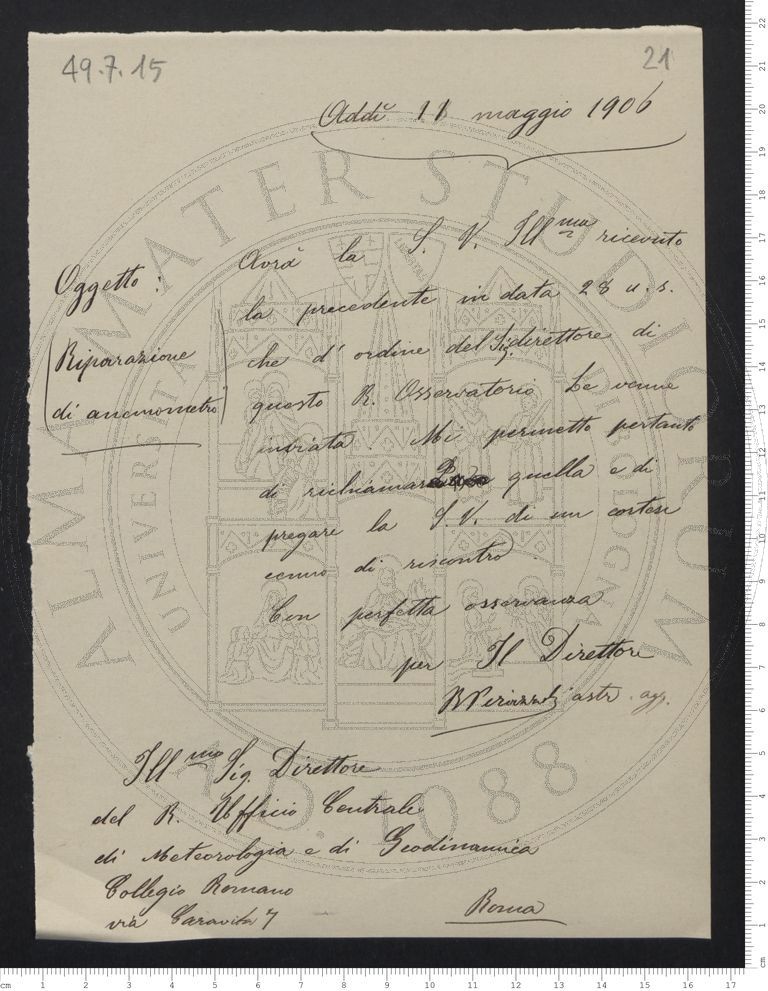 49.7.15
21
Addì 11 maggio 1906
Avrà la S. V. Ill.ma ricevuto
Oggetto:
la precedente in data 28 u. s.
che d'ordine del Sig. direttore di
Riparazione
questo R. Osservatorio Le venne
di anemometro
inviata. Mi permetto pertanto
di richiamare quella e di
pregare la S. V. di un cortese
cenno di riscontro.
Con perfetta osservanza
per Il Direttore
astr. agg.
Ill.mo Sig. Direttore
del R. Ufficio Centrale
di Meteorologia e di Geodinamica
Collegio Romano
via Caravita 7
Roma
ALMA MATER STUDIORUM
A.D. 1088